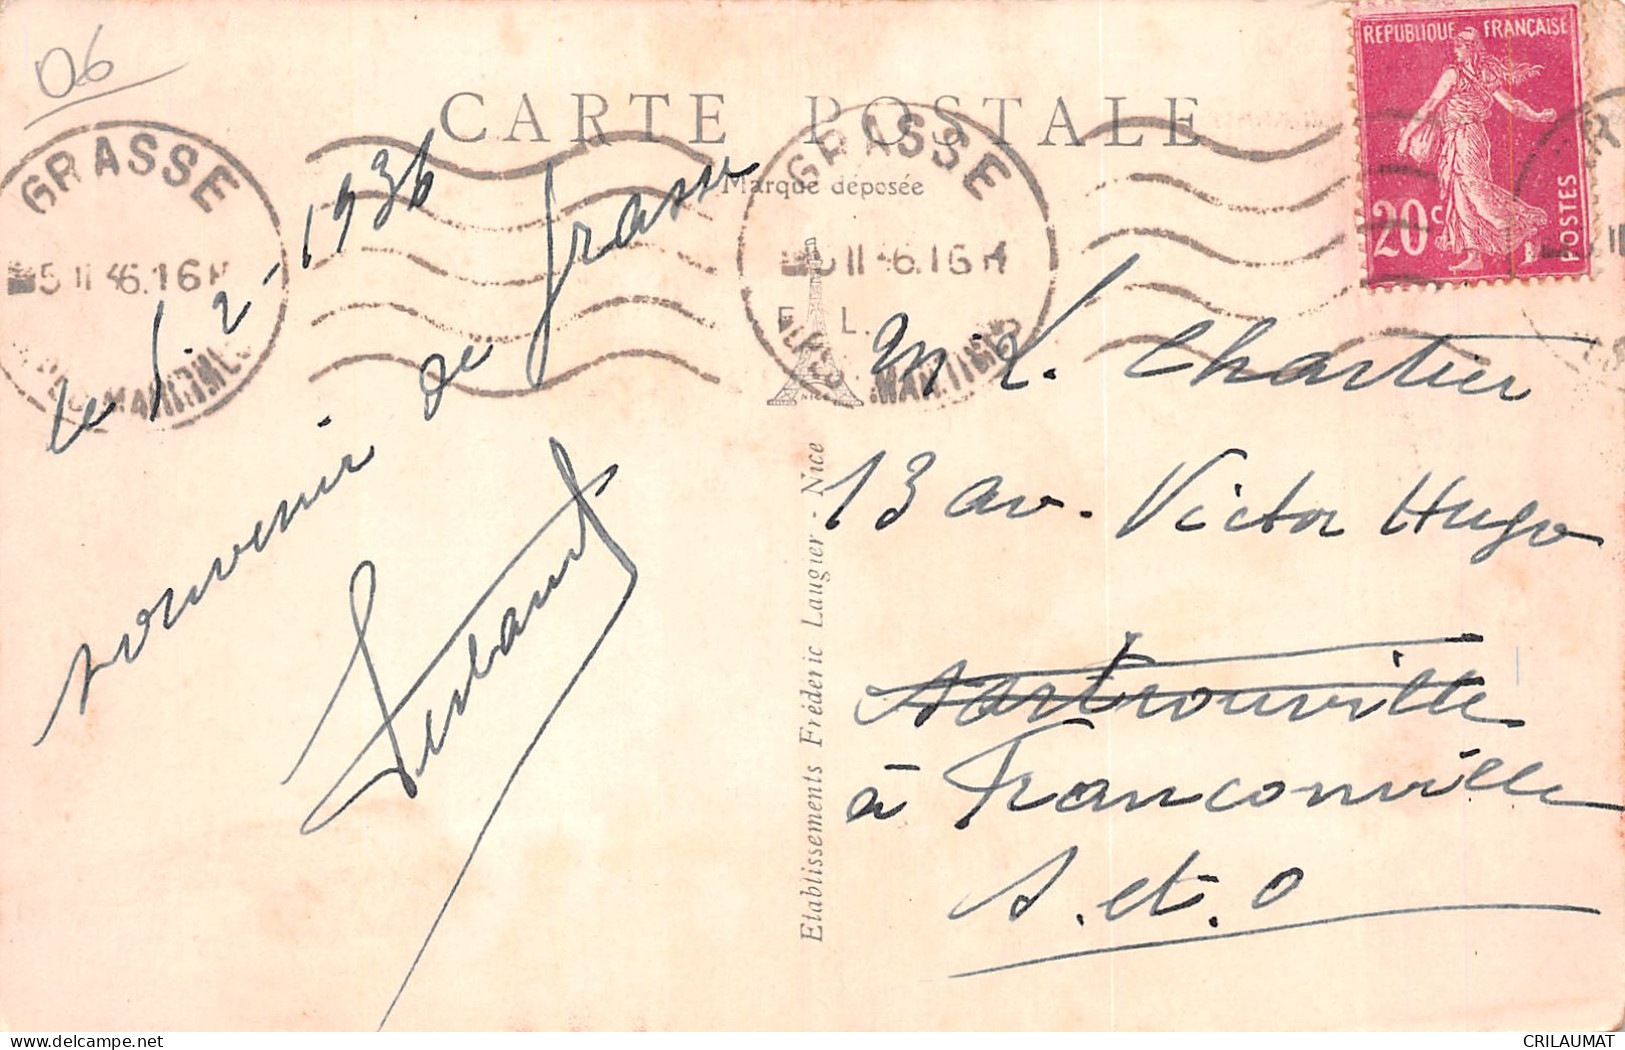 06
CARTE POSTALE
Marque déposée
REPUBLIQUE FRANÇAISE
20c
POSTES
GRASSE
5 II 36. 16 H
GRASSE
5 II 36. 16 H
ALPES MARITIMES
E. L.
NICE
le 5-2-1936
souvenir de Grasse
M. L. Chartier
13 av. Victor Hugo
Sartrouville
à Franconville
S. et. O
Etablissements Fréderic Laugier - Nice
CRILAUMAT